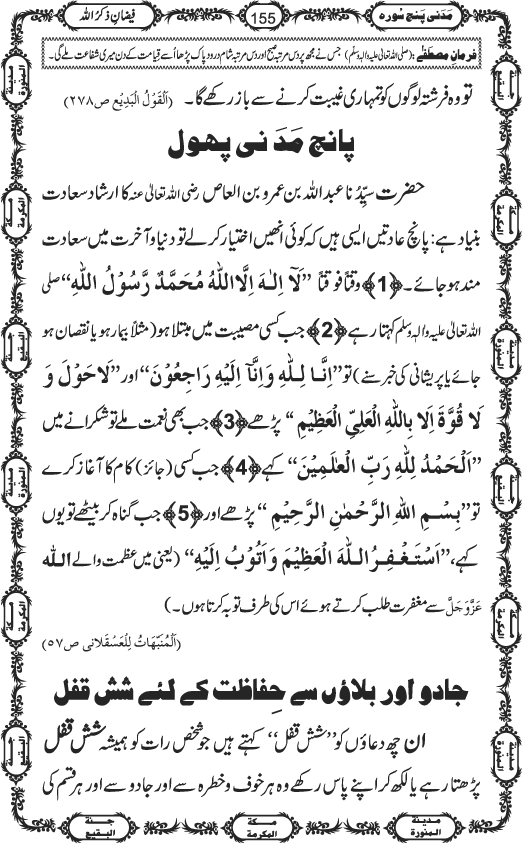 مَدَنی پنج سورہ 155 فیضانِ ذکرُ اللہ
فرمانِ مصطَفٰے: (صلی اللہ تعالیٰ علیہ والہٖ وسلم) جس نے مجھ پر دس مرتبہ صبح اور دس مرتبہ شام درود پاک پڑھا اُسے قیامت کے دن میری شفاعت ملے گی۔
تو وہ فرشتہ لوگوں کو تمہاری غیبت کرنے سے باز رکھے گا۔ (اَلْقَوْلُ الْبَدِیْع ص۲۷۸)
پانچ مَدَ نی پھول
حضرت سیِّدُنا عبداللہ بن عمرو بن العاص رضی اللہ تعالیٰ عنہ کا ارشاد سعادت
بنیاد ہے: پانچ عادتیں ایسی ہیں کہ کوئی انھیں اختیار کرلے تو دنیا و آخرت میں سعادت
مند ہو جائے۔ ﴿1﴾ وقتًا فوقتًا ”لَآ اِلٰـہَ اِلَّا اللہُ مُحَمَّدٌ رَّسُوْلُ اللہِ“ صلی
اللہ تعالیٰ علیہ والہٖ وسلم کہتا رہے ﴿2﴾ جب کسی مصیبت میں مبتلا ہو (مثلاً بیمار ہو یا نقصان ہو
جائے یا پریشانی کی خبر سنے) تو ”اِنَّـا لِلّٰہِ وَاِنَّآ اِلَیْہِ رَاجِعُوْنَ“ اور ”لَاحَوْلَ وَ
لَا قُوَّۃَ اِلَّا بِاللہِ الْعَلِیِّ الْعَظِیْمِ “ پڑھے ﴿3﴾ جب بھی نعمت ملے تو شکرانے میں
”اَلْحَمْدُ لِلّٰہِ رَبِّ الْعٰلَمِیْنَ“ کہے ﴿4﴾ جب کسی (جائز) کام کا آغاز کرے
تو ”بِسْمِ اللہِ الرَّحْمٰنِ الرَّحِیْمِ “ پڑھے اور ﴿5﴾ جب گناہ کر بیٹھے تو یوں
کہے، ”اَسْتَغْفِرُ اللہَ الْعَظِیْمَ وَاَتُوْبُ اِلَیْہِ“ (یعنی میں عظمت والے اللہ
عَزَّوَجَلَّ سے مغفرت طلب کرتے ہوئے اس کی طرف توبہ کرتا ہوں۔)
(اَلْمُنَبِّہَاتُ لِلْعَسْقَلَانی ص۵۷)
جادو اور بلاؤں سے حِفاظت کے لئے شش قفل
ان چھ دعاؤں کو ”شش قفل“ کہتے ہیں جو شخص رات کو ہمیشہ شش قفل
پڑھتا رہے یا لکھ کر اپنے پاس رکھے وہ ہر خوف و خطرہ سے اور جادو سے اور ہر قسم کی
مدینۃ المنورۃ
مکۃ المکرمۃ
جنۃ البقیع
مدینۃ المنورۃ
مکۃ المکرمۃ
جنۃ البقیع
جنۃ البقیع
مکۃ المکرمۃ
مدینۃ المنورۃ
جنۃ البقیع
مکۃ المکرمۃ
مدینۃ المنورۃ
مدینۃ المنورۃ
مکۃ المکرمۃ
جنۃ البقیع